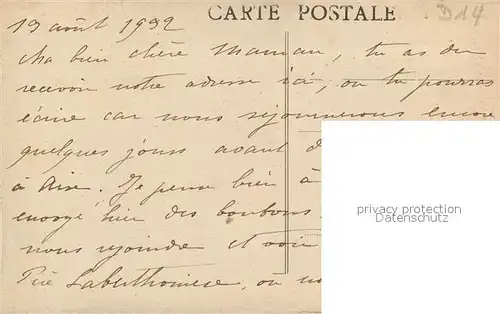 CARTE POSTALE
D14
13 août 1932
Ma bien chère Maman, tu as du
recevoir notre adresse ici, ou tu pourras
écrire car nous séjournerons encore
quelques jours avant d
à Aire. Je pense bien à
envoyé hier des bonbons.
nous rejoindre et voir
Labesthonière, ou
privacy protection
Datenschutz